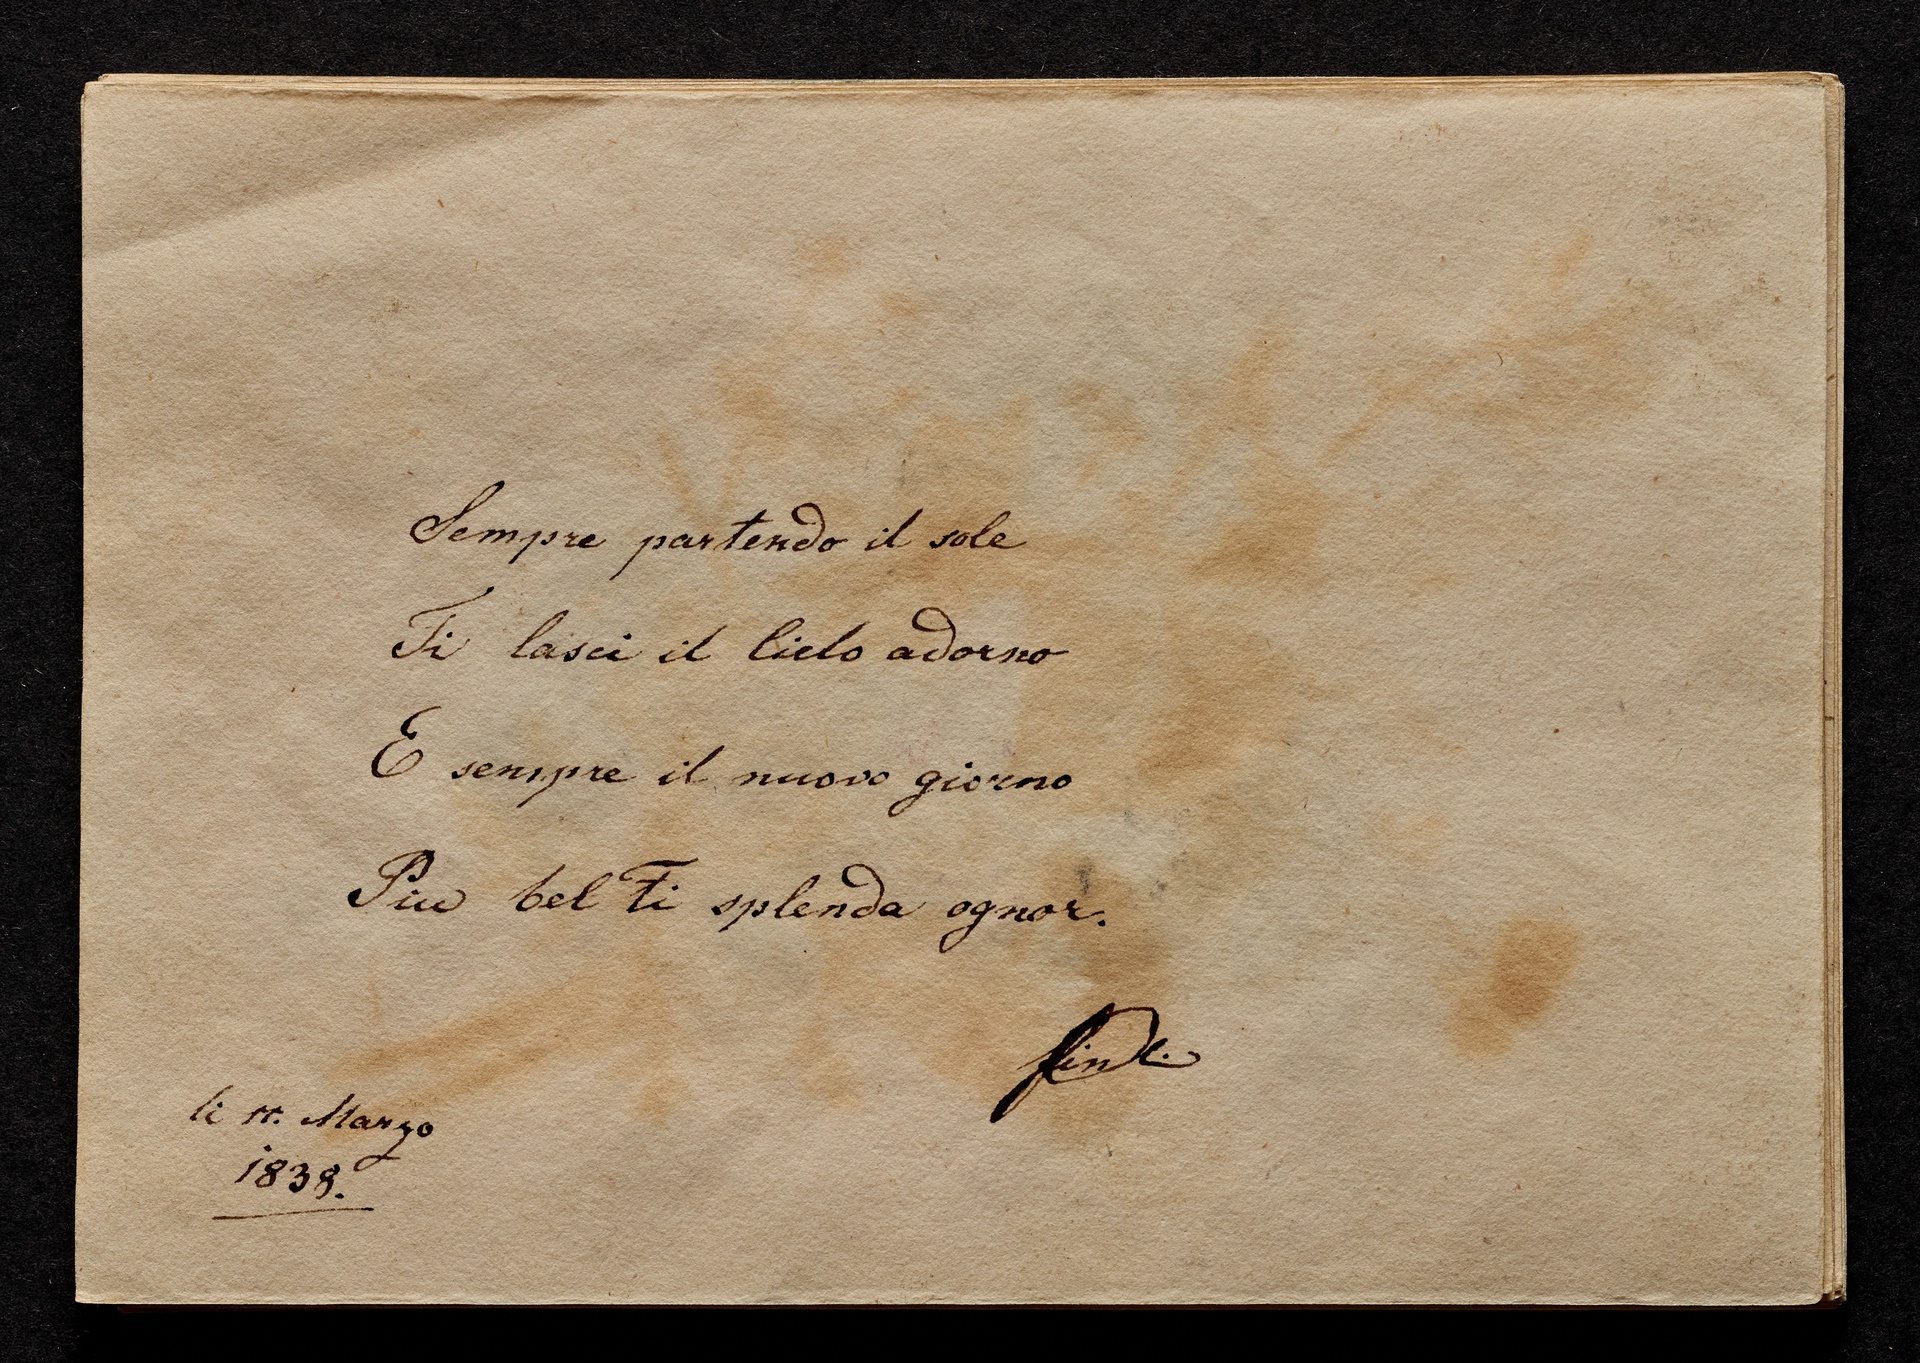 Sempre partendo il sole
Ti lasci il Cielo adorno
E sempre il nuovo giorno
Piu bel Ti splenda ognor.
li 11. Marzo
1838.